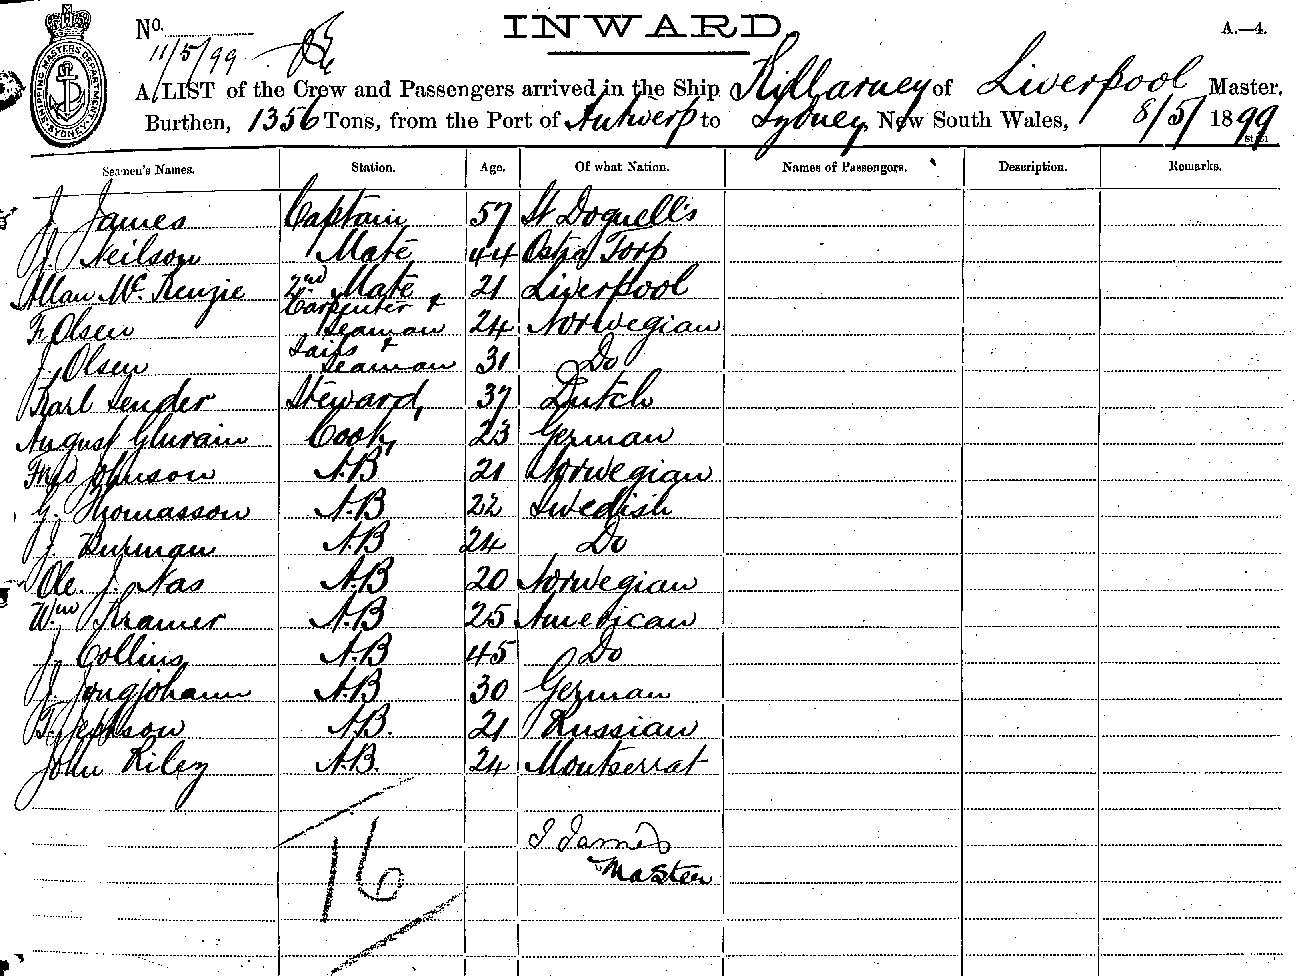 INWARD.
A.—4.
No.
11/5/99
SHIPPING MASTERS DEPARTMENT SYDNEY
A LIST of the Crew and Passengers arrived in the Ship Killarney of Liverpool Master,
Burthen, 1356 Tons, from the Port of Antwerp to Sydney, New South Wales, 8/5/ 1899
Seamen's Names. Station. Age. Of what Nation. Names of Passengers. Description. Remarks.
J. James Captain 57 St Dogmell's
J. Neilson Mate 44 Ostra Torp
Allan Mc. Kenzie 2nd Mate 21 Liverpool
F. Olsen Carpenter & Seaman 24 Norwegian
J. Olsen Sails & Seaman 31 Do
Karl Sender Steward, 37 Dutch
August Glurain Cook, 23 German
Fred Johnson A.B 21 Norwegian
G. Thomasson A.B 22 Swedish
J. Burman A.B 24 Do
Ole. J. Nas A.B 20 Norwegian
Wm Kramer A.B 25 American
J. Collins A.B 45 Do
J. Jongjohann A.B 30 German
A.B. 21 Russian
John Riley A.B. 24 Montserrat
16
J James
Master